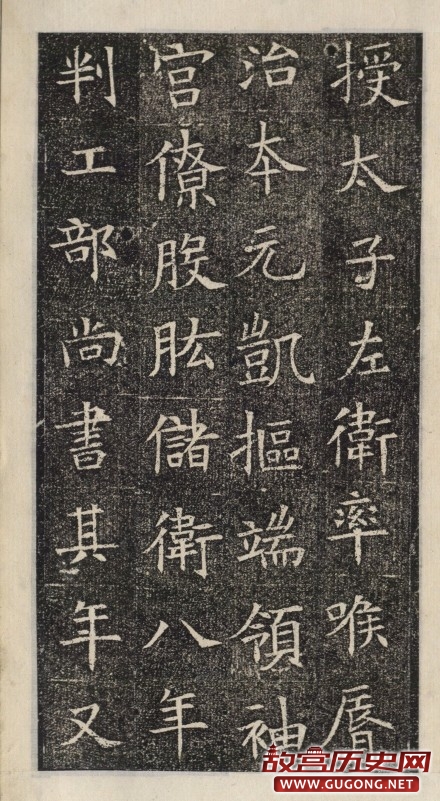 授太子左衛率喉脣
治本元凱摳端領袖
官僚股肱儲衛八年
判工部尚書其年又
故宫历史网
WWW.GUGONG.NET